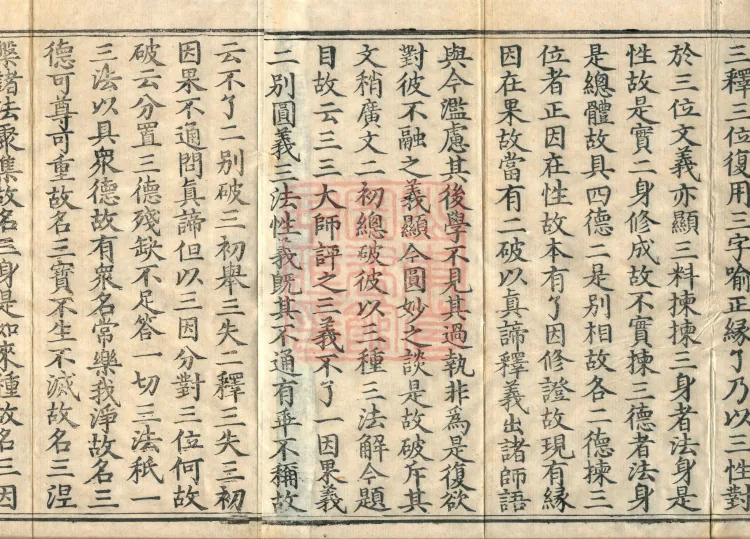 三釋三位復用三字喻正緣了乃以三性對
於三位文義亦顯三料揀揀三身者法身是
性故是實二身修成故不實揀三德者法身
是總體故具四德二是別相故各二德揀三
位者正因在性故本有了因修證故現有緣
因在果故當有二破以真諦釋義出諸師語
與今濫慮其後學不見其過執非爲是復欲
對彼不融之義顯今圓妙之談是故破斥其
文稍廣文二初總破彼以三種三法解今題
目故云三三大師評之三義不了一因果義
二別圓義三法性義旣其不通有乖不稱故
云不了二別破三初舉三失二釋三失三初
因果不通問眞諦但以三因分對三位何故
破云分置三德殘缺不足答一切三法秖一
三法以具衆德故有衆名常樂我淨故名三
德可尊可重故名三寶不生不滅故名三涅
槃諸法聚集故名三身是如來種故名三因